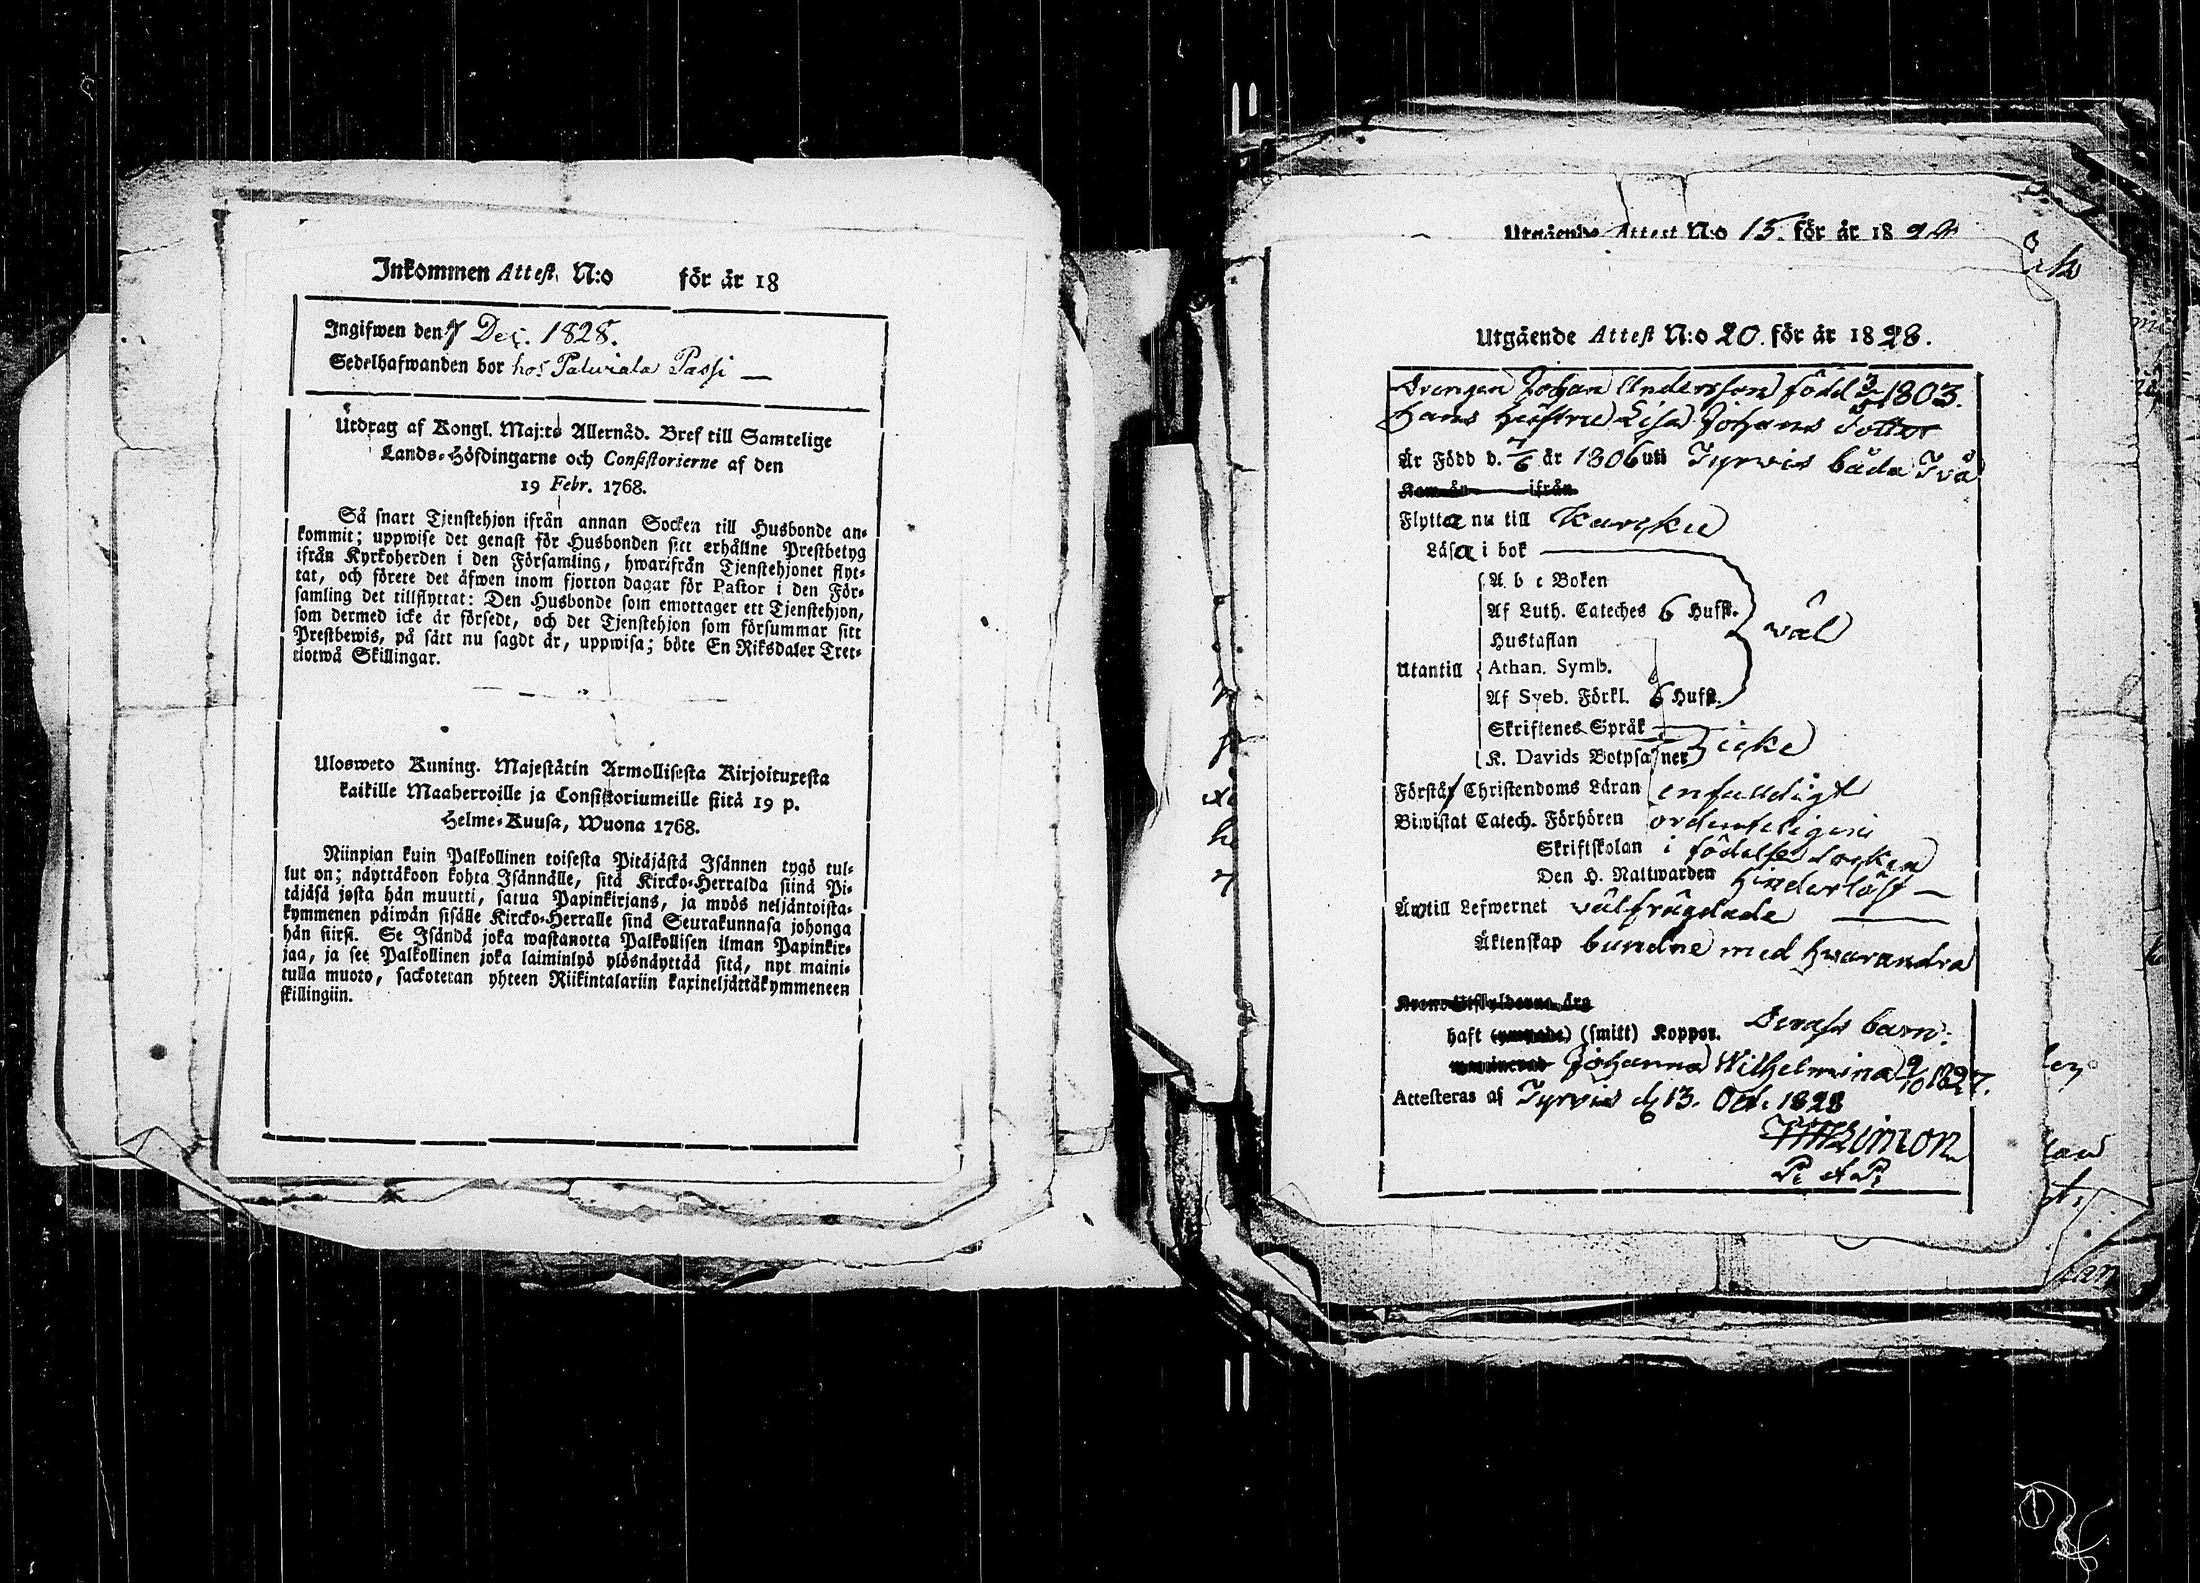 Inkommen Attest N:o för år 18
Ingifwen den 7 Dec. 1828.
Sedelhafwanden bor hos Paluiala Passi —
Utdrag af Kongl. Maj:ts Allernåd. Bref till Samtelige
Lands-Höfdingarne och Consistorierne af den
19 Febr. 1768.
Så snart Tjenstehjon ifrån annan Socken till Husbonde an-
kommit; uppwise det genast för Husbonden sitt erhållne Prestbetyg
ifrån Kyrkoherden i den Församling, hwarifrån Tjenstehjonet flyt-
tat, och förete det äfwen inom fjorton dagar för Pastor i den För-
samling det tillflyttat: Den Husbonde som emottager ett Tjenstehjon,
som dermed icke är försedt, och det Tjenstehjon som försummar sitt
Prestbewis, på sätt nu sagdt är, uppwisa; böte En Riksdaler Tret-
tiotwå Skillingar.
Ulosweto Kuning. Majestätin Armollisesta Kirjoituxesta
kaikille Maaherroille ja Consistoriumeille siitä 19 p.
Helme-Kuusa, Wuona 1768.
Niinpian kuin Palkollinen toisesta Pitäjästä Isännen tygö tul-
lut on; näyttäköon kohta Isännälle, sitä Kircko-Herralda siinä Pi-
täjäsä josta hän muutti, saatua Papinkirjans, ja myös neljäntoista-
kymmenen päiwän sisälle Kircko-Herralle sinä Seurakunnasa johonga
hän siirsi. Se Isändä joka wastanotta Palkollisen ilman Papinkir-
jaa, ja see Palkollinen joka laiminlyö ylösnäyttää sitä, nyt maini-
tulla muoto, sackotetan yhteen Riikintalariin kaxineljättäkymmeneen
skillingiin.
Utgående Attest N:o 15. för år 18
Utgående Attest N:o 20. för år 1828.
Drengen Johan Andersson född 3/ 1803.
Hans Hustru Lisa Johans Dotter
Är Född d. 7/6 år 1806 uti Tyrwis båda Två
Kom år ifrån
Flytta nu till Karcku
Läsa i bok
A b c Boken
Af Luth. Cateches 6 Hufst. wäl
Hustaflan
Utantill Athan. Symb.
Af Sveb. Förkl. 6 Hufst.
Skriftenes Språk
K. Davids Botpsalmer icke
Förstå Christendoms Läran enfaldigt
Biwistat Catech. Förhören ordenteligen
Skriftskolan i födelse Socken
Den H. Nattwarden hinderlöst —
Äro till Lefwernet wälfrägdade
Äktenskap bundne med hwarandra
haft (smitt) Koppor. Derass barn:
Johanna Wilhelmina 9/10 1827.
Attesteras af Tyrvis d 13. Oct. 1828